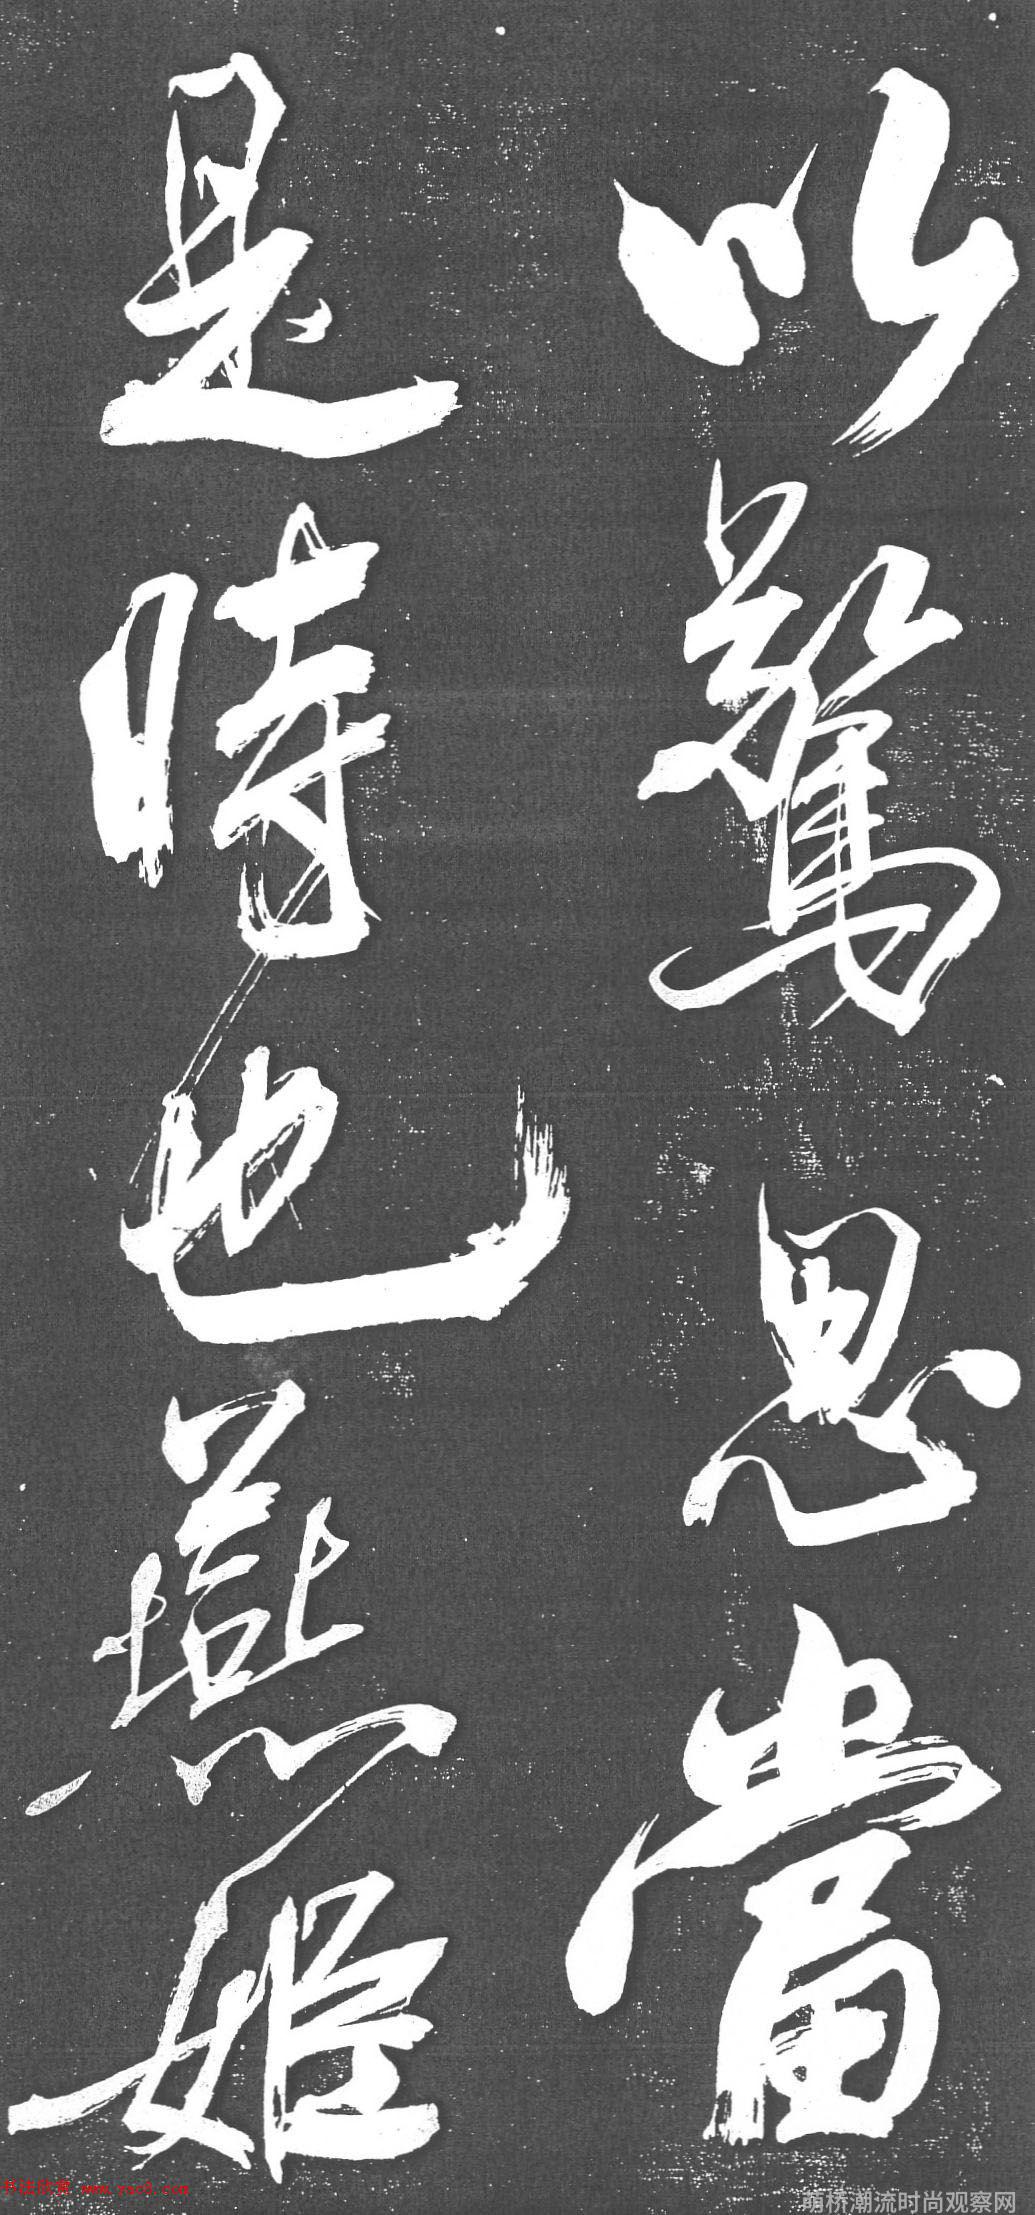 以驚思當
是時也燕姬
书法欣赏 www.yac8.com
萌桥潮流时尚观察网